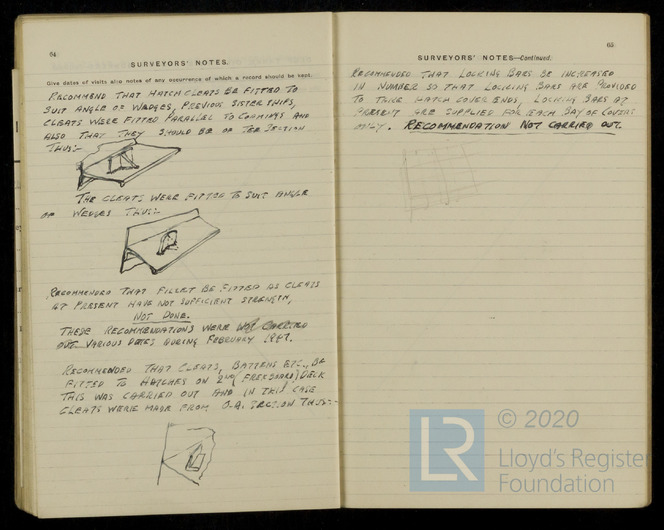 64
SURVEYORS' NOTES.
Give dates of visits also notes of any occurrence of which a record should be kept.
RECOMMEND THAT HATCH CLEATS BE FITTED TO
SUIT ANGLE OF WEDGES, PREVIOUS SISTER SHIPS,
CLEATS WERE FITTED PARALLEL TO COAMINGS AND
ALSO THAT THEY SHOULD BE OF TEE SECTION
THUS:-
THE CLEATS WERE FITTED TO SUIT ANGLE
OF WEDGES THUS:-
RECOMMENDED THAT FILLET BE FITTED AS CLEATS
AT PRESENT HAVE NOT SUFFICIENT STRENGTH,
NOT DONE.
THESE RECOMMENDATIONS WERE NOT CARRIED
OUT VARIOUS DATES DURING FEBRUARY 1947.
RECOMMENDED THAT CLEATS, BATTENS ETC., BE
FITTED TO HATCHES ON 2ND (FREEBOARD) DECK
THIS WAS CARRIED OUT AND IN THIS CASE
CLEATS WERE MADE FROM O.A. SECTION THUS:-
65
SURVEYORS' NOTES—Continued.
RECOMMENDED THAT LOCKING BARS BE INCREASED
IN NUMBER SO THAT LOCKING BARS ARE PROVIDED
TO HATCH COVER ENDS, LOCKING BARS AT
PRESENT ARE SUPPLIED FOR EACH BAY OF COVERS
ONLY. RECOMMENDATION NOT CARRIED OUT.
© 2020
LR
Lloyd's Register
Foundation